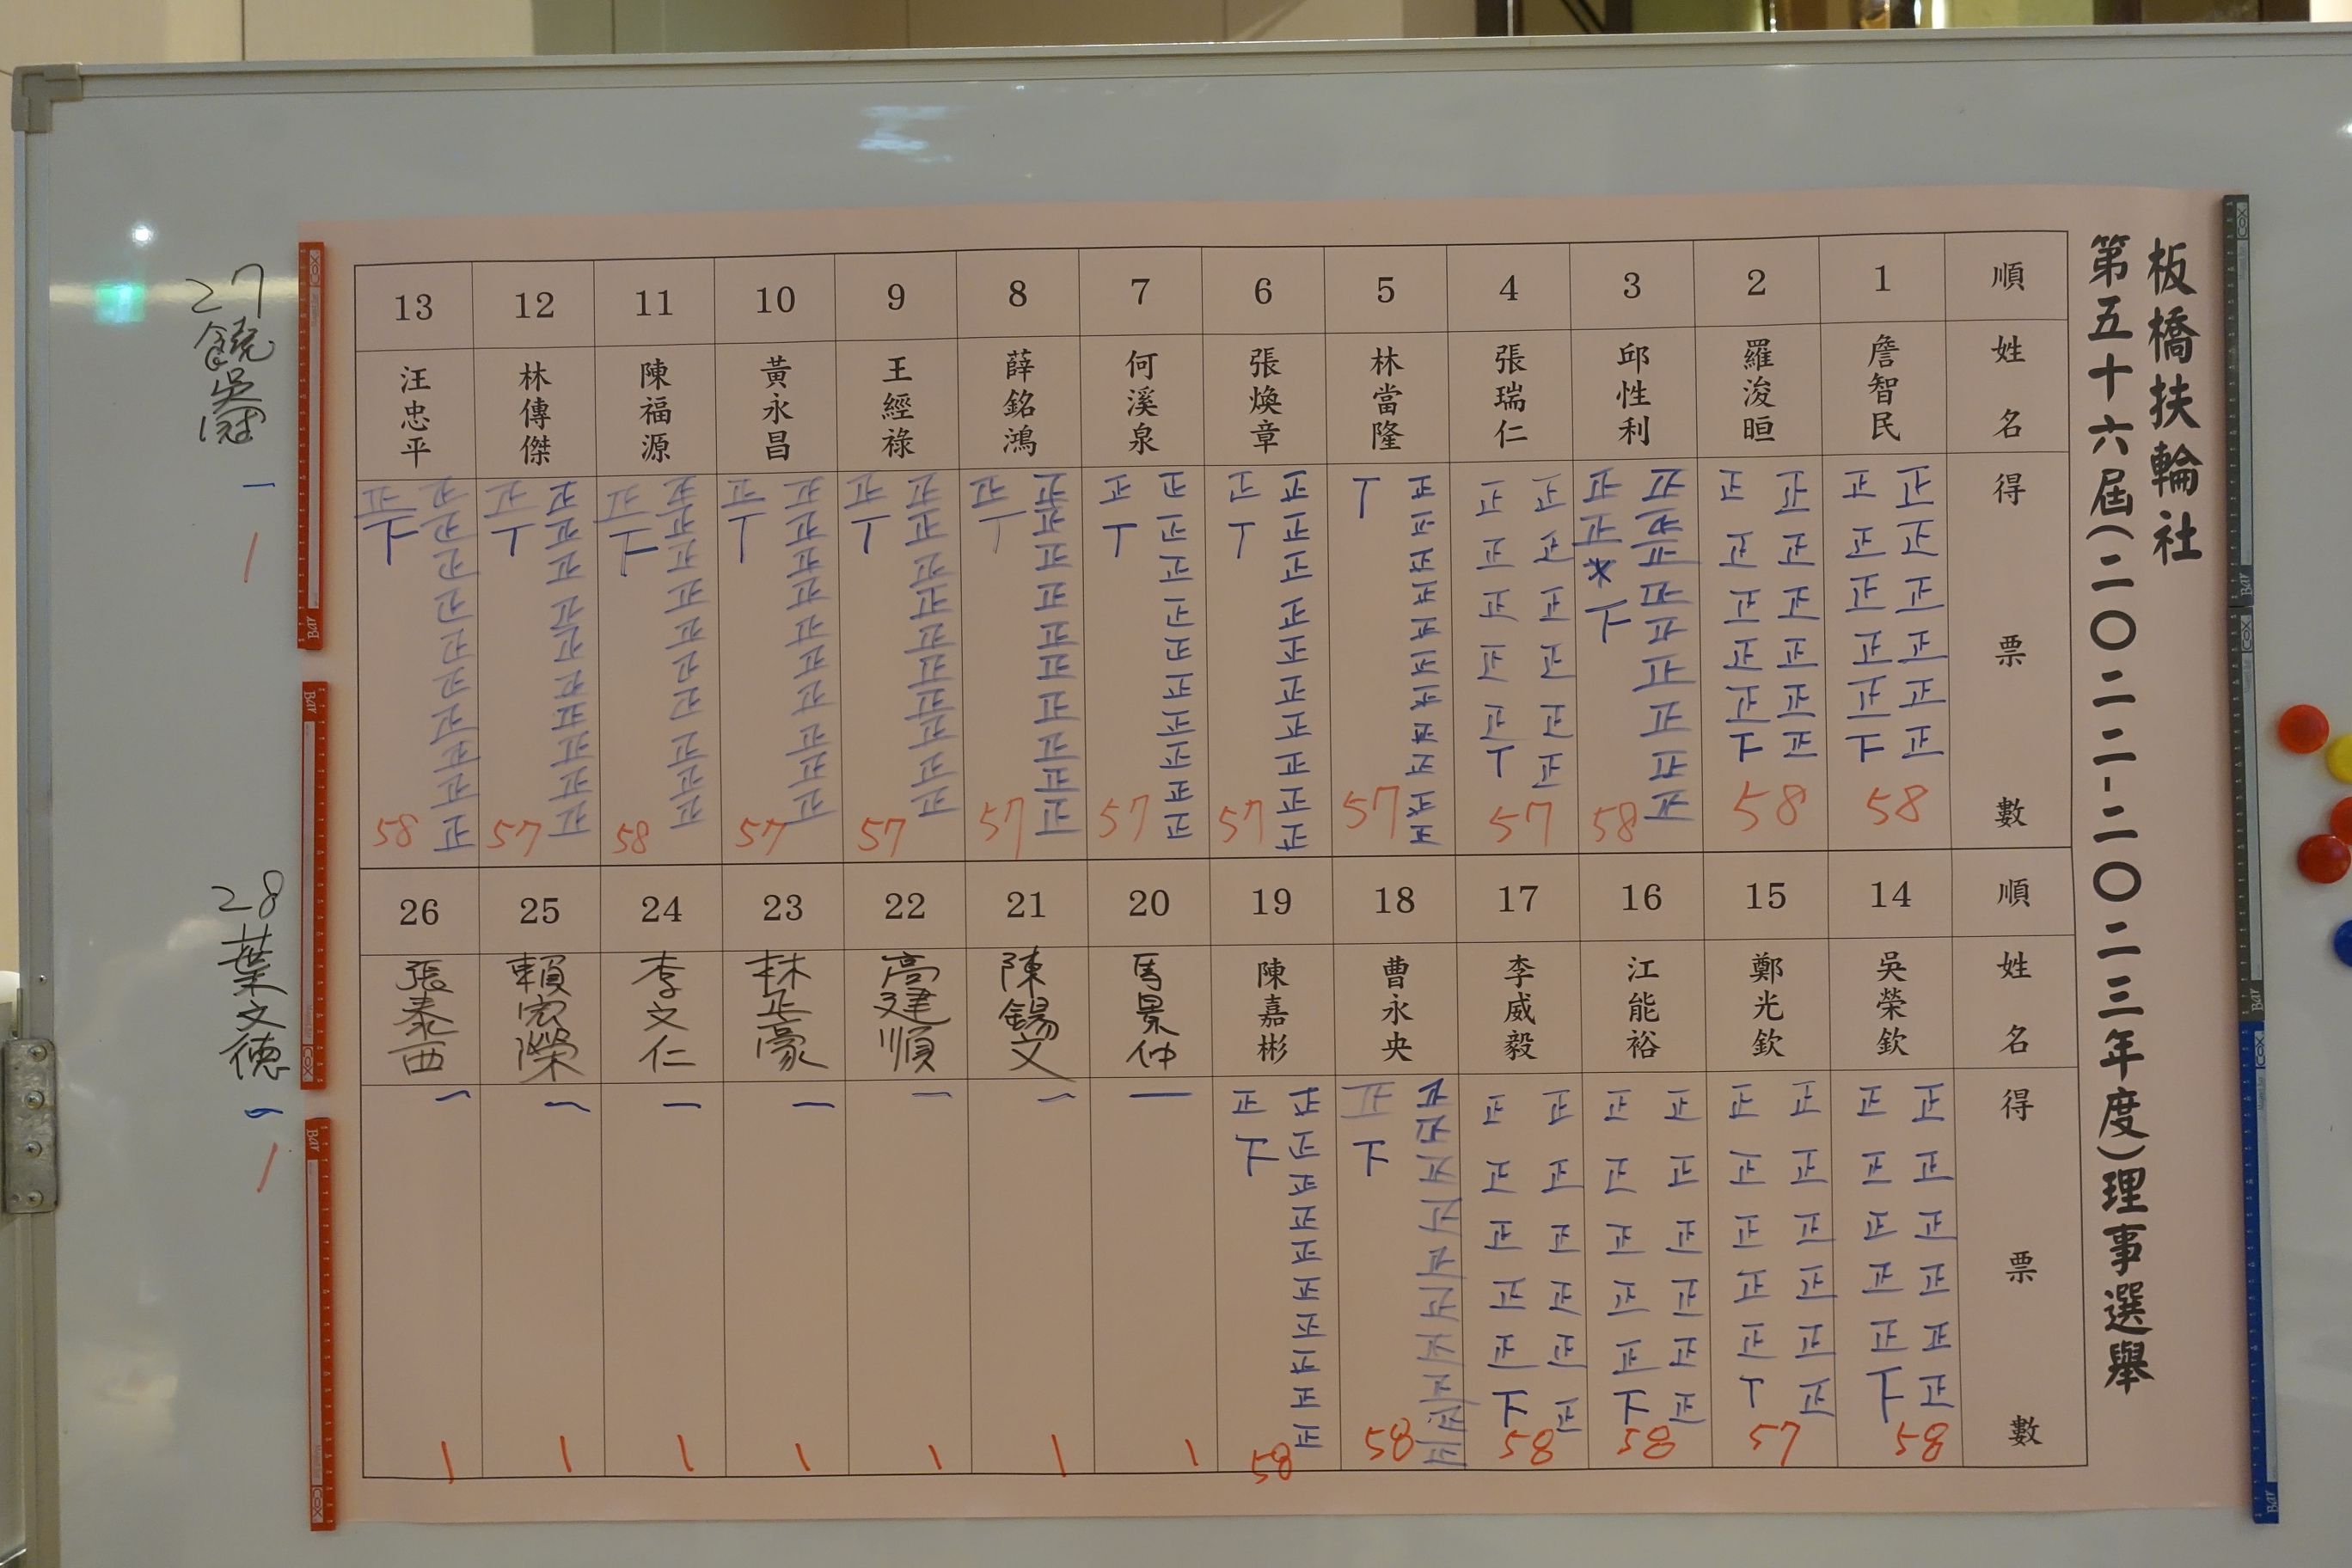 板橋扶輪社
第五十六屆(二〇二二-二〇二三年度)理事選舉
順 1 2 3 4 5 6 7 8 9 10 11 12 13
姓名 詹智民 羅浚晅 邱性利 張瑞仁 林當隆 張煥章 何溪泉 薛銘鴻 王經祿 黃永昌 陳福源 林傳傑 汪忠平
得票數 58 58 58 57 57 57 57 57 57 57 58 57 58
順 14 15 16 17 18 19 20 21 22 23 24 25 26
姓名 吳榮欽 鄭光欽 江能裕 李威毅 曹永央 陳嘉彬 馬景仲 陳錫文 高建順 林正豪 李文仁 賴宏榮 張泰西
得票數 58 57 58 58 58 58 1 1 1 1 1 1 1
27 饒吳冠 一 1
28 葉文德 一 1